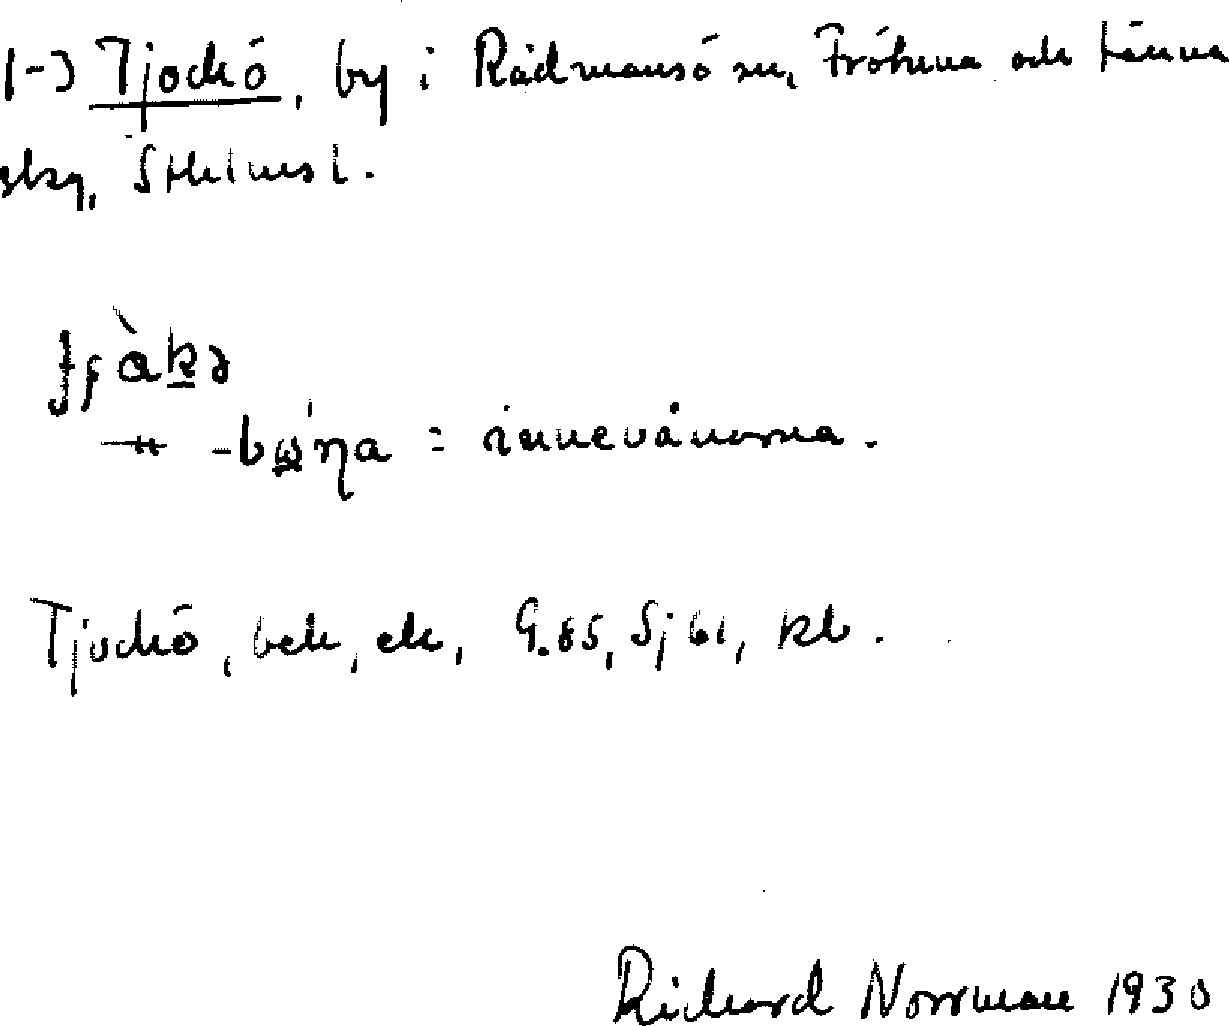 1-) Tjockö, by i Rådmansö sn, Fröhuna och Länna
skg, Sthlms l.
-boŋa = innevånarna.
Tjockö, bek, ek, G. 85, Sj 61, kb.
Richard Norrman 1930